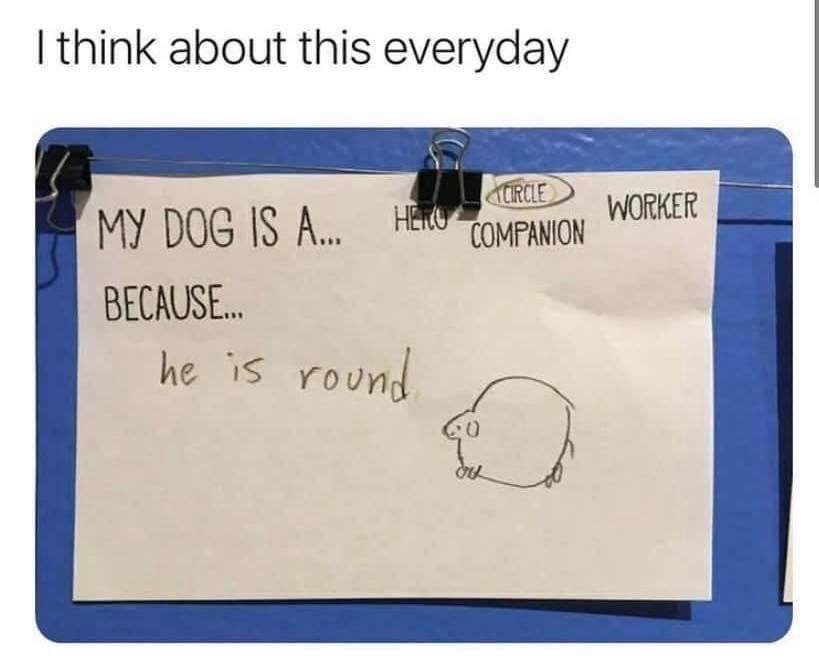 I think about this everyday
MY DOG IS A... HERO (CIRCLE) WORKER
COMPANION
BECAUSE...
he is round.